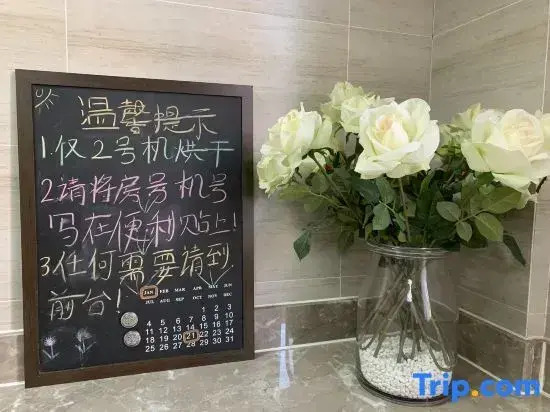 温馨提示
1.仅2号机烘干
2.请将房号机号
写在便利贴上!
3.任何需要请到
前台!
JAN FEB MAR APR MAY JUN
JUL AUG SEP OCT NOV DEC
1 2 3
4 5 6 7 8 9 10
11 12 13 14 15 16 17
18 19 20 21 22 23 24
25 26 27 28 29 30 31
Trip.com